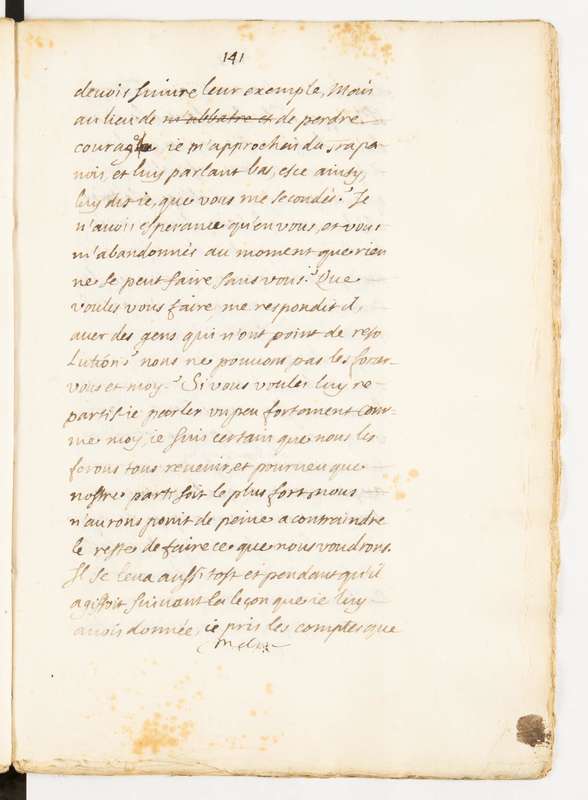 141
devois suivre leur exemple, Mais
au lieu de m'abbatre et de perdre
courage ie m'approchai du
nois, et luy parlant bas, esce ainsy,
luy dis-ie, que vous me secondés? Je
n'avois esperance qu'en vous, et vous
m'abandonnés au moment que rien
ne se peut faire sans vous? Que
voulés vous faire, me respondit il,
avec des gens qui n'ont point de reso
lution? nous ne pouvons pas les forcer
vous et moy? Si vous voulés luy re-
partis-ie parler un peu fortement com-
me moy, ie suis certain que nous les
ferons tous revenir, et pourveu que
nostre parti soit le plus fort, nous
n'aurons point de peine a contraindre
le reste de faire ce que nous voudrons.
Il se leva aussi tost et pendant qu'il
agissoit suivant la leçon que ie luy
avois donnée, ie pris les comptes que